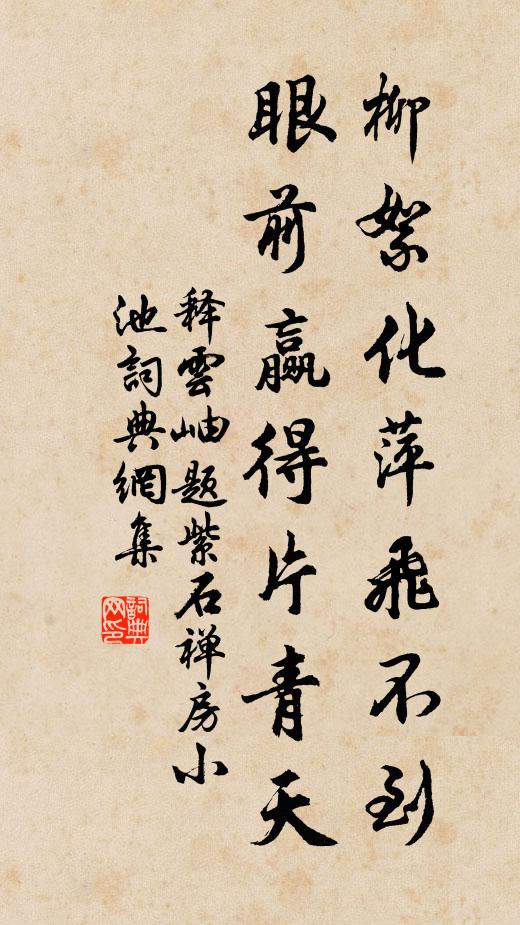 柳絮化萍飛不到
眼前贏得片青天
释雲岫题紫石禅房小
池詞典網集
詞典网印